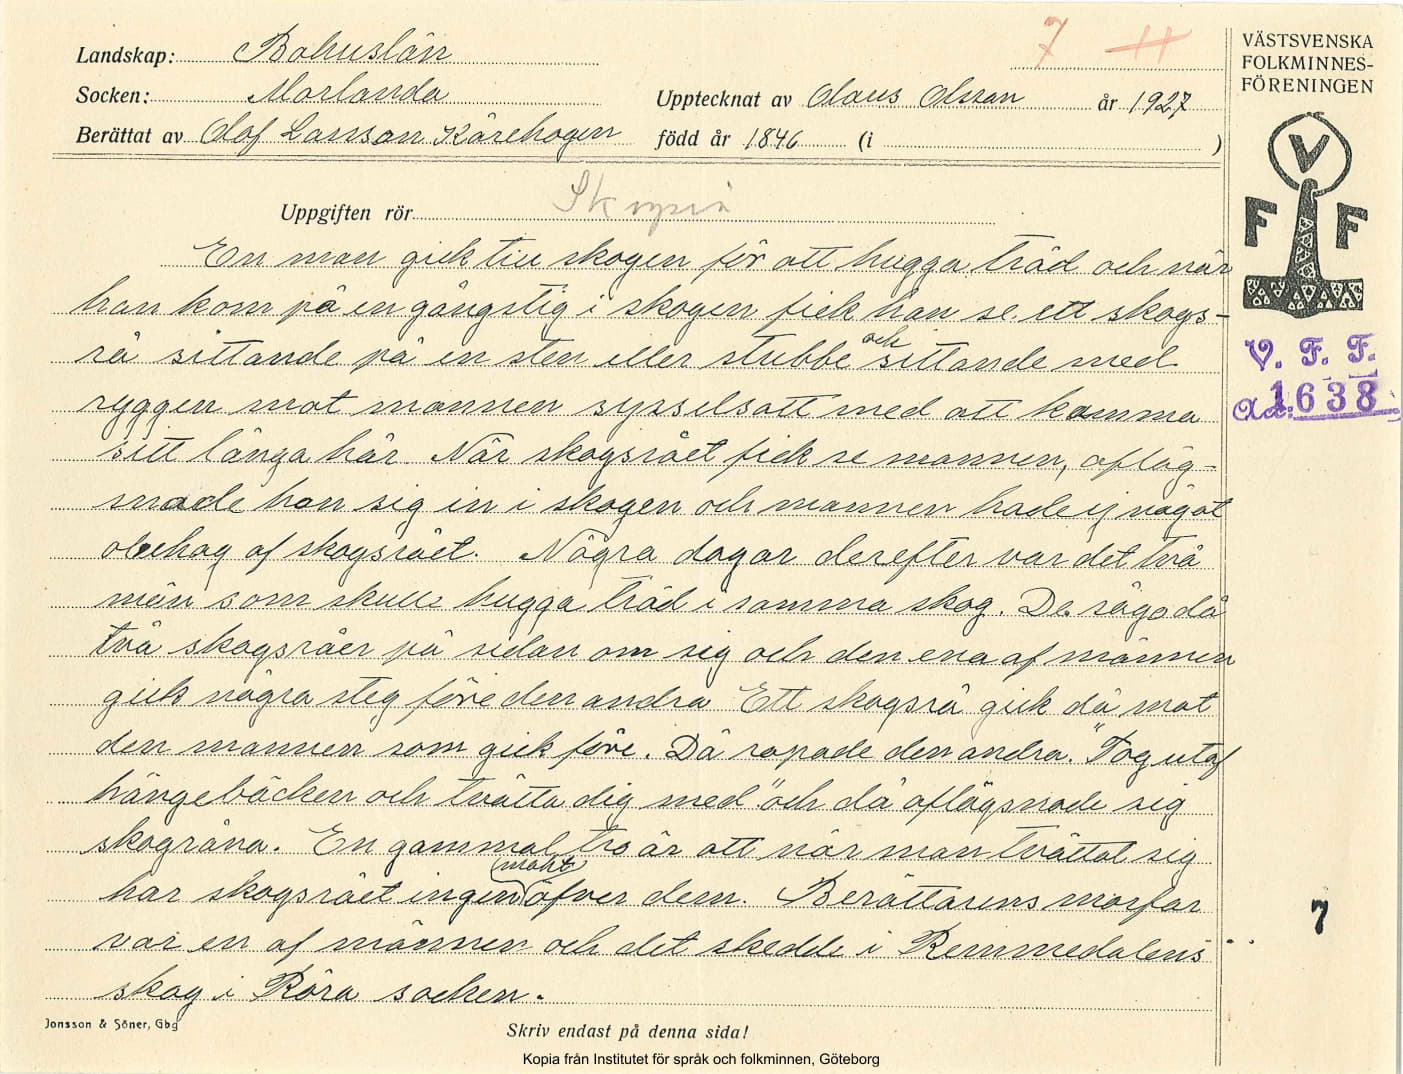 Landskap: Bohuslän
Socken: Morlanda
Upptecknat av Olaus Olsson år 1927
Berättat av Olof Larsson Kårehogen född år 1846 (i )
7
VÄSTSVENSKA
FOLKMINNES-
FÖRENINGEN
V
F F
V. F. F.
Acc: 1638
Uppgiften rör Skogsrå
En man gick till skogen för att hugga träd och när
han kom på en gångstig i skogen fick han se ett skogs-
rå sittande på en sten eller stubbe och sittande med
ryggen mot mannen sysselsatt med att kamma
sitt långa hår. När skogsrået fick se mannen, afläg-
snade hon sig in i skogen och mannen hade ej något
obehag af skogsrået. Några dagar derefter var det två
män som skulle hugga träd i samma skog. De sågo då
två skogsråer på sidan om sig och den ena af männen
gick några steg före den andra Ett skogsrå gick då mot
den mannen som gick före. Då ropade den andra. "Tog utaf
hängebäcken och tvätta dig med" och då aflägsnade sig
skogråna. En gammal tro är att när man tvättat sig
har skogsrået ingen makt öfver dem. Berättarens morfar
var en af männen och det skedde i Remmedalens
skog i Röra socken.
7
Jonsson & Söner, Gbg
Skriv endast på denna sida!
Kopia från Institutet för språk och folkminnen, Göteborg